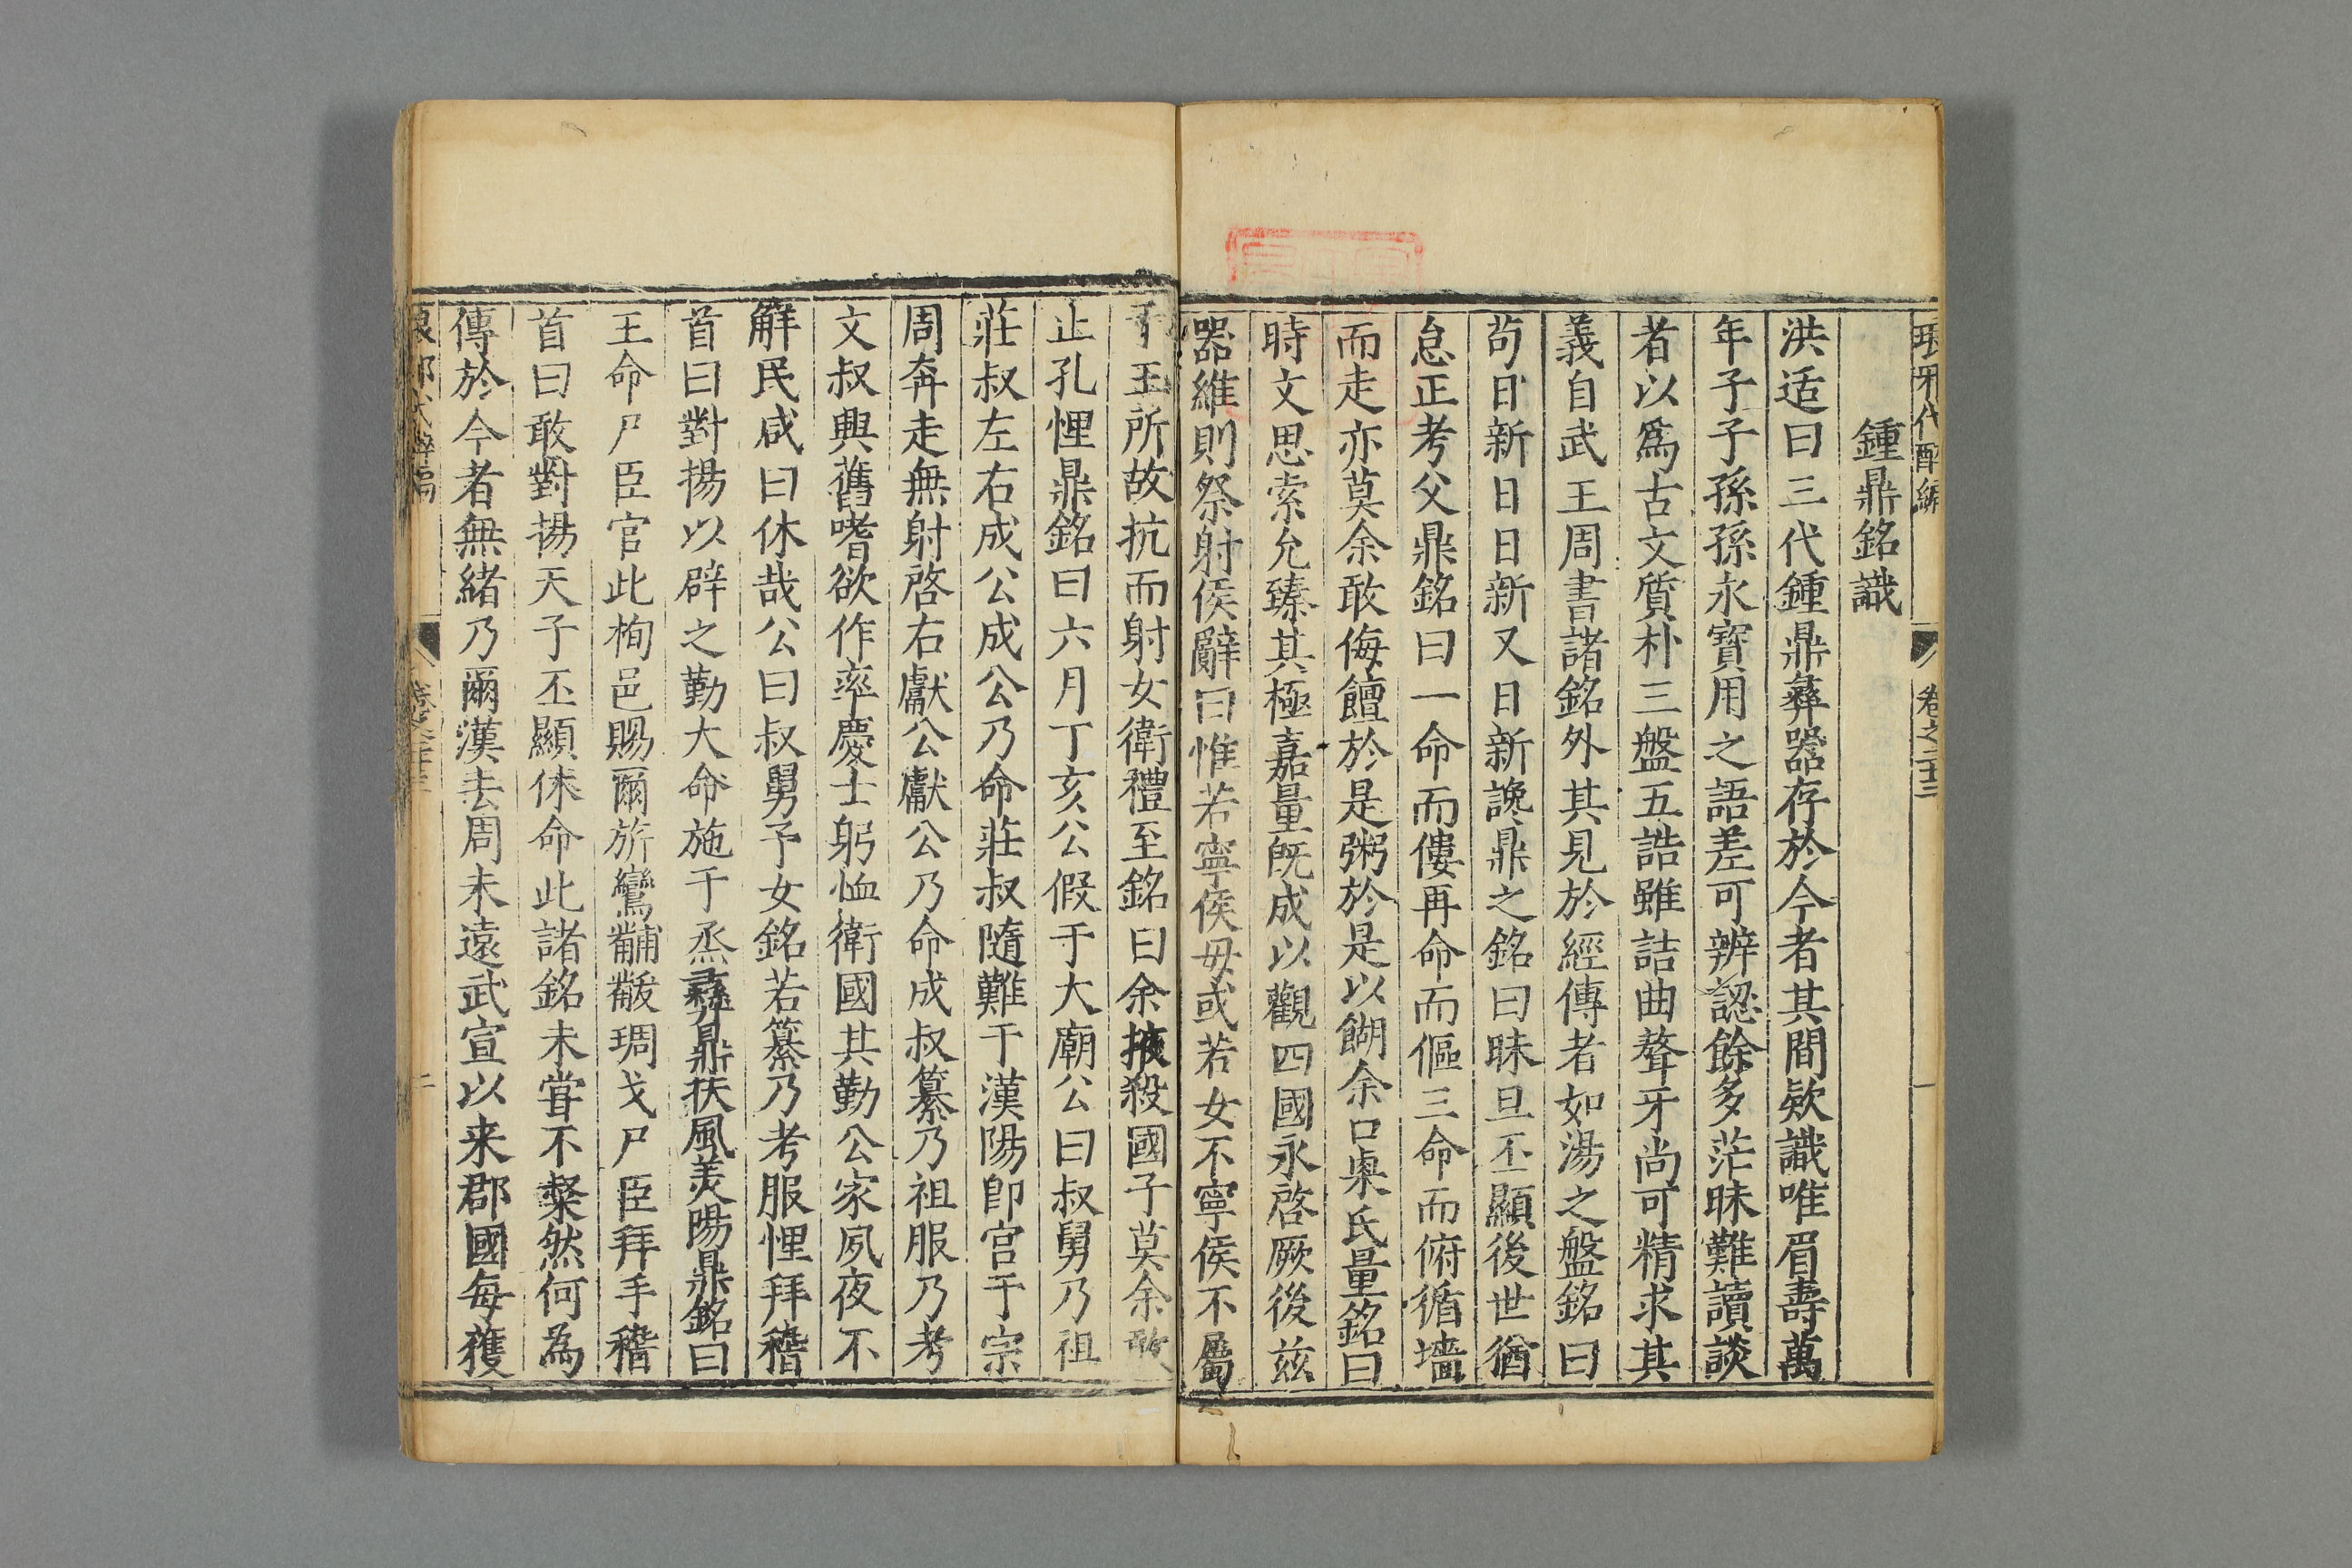 琅邪代醉編 卷之二十三 一
鍾鼎銘識
洪适曰三代鍾鼎彝器存於今者其間欵識唯眉壽萬
年子子孫孫永寶用之語差可辨認餘多茫昧難讀談
者以爲古文質朴三盤五誥雖詰曲聱牙尚可精求其
義自武王周書諸銘外其見於經傳者如湯之盤銘曰
苟日新日日新又日新讒鼎之銘曰昧旦丕顯後世猶
怠正考父鼎銘曰一命而僂再命而傴三命而俯循墻
而走亦莫余敢侮饘於是粥於是以餬余口㮚氏量銘曰
時文思索允臻其極嘉量旣成以觀四國永啓厥後兹
器維則祭射侯辭曰惟若寧侯毋或若女不寧侯不屬
于王所故抗而射女衛禮至銘曰余掖殺國子莫余敢
止孔悝鼎銘曰六月丁亥公假于大廟公曰叔舅乃祖
莊叔左右成公成公乃命莊叔隨難于漢陽卽宫于宗
周奔走無射啓右獻公獻公乃命成叔纂乃祖服乃考
文叔興舊嗜欲作率慶士躬恤衛國其勤公家夙夜不
解民咸曰休哉公曰叔舅予女銘若纂乃考服悝拜稽
首曰對揚以辟之勤大命施于烝彝鼎扶風美陽鼎銘曰
王命尸臣官此栒邑賜爾旂鸞黼黻琱戈尸臣拜手稽
首曰敢對揚天子丕顯休命此諸銘未嘗不粲然何為
傳於今者無緒乃爾漢去周未遠武宣以来郡國每獲
二